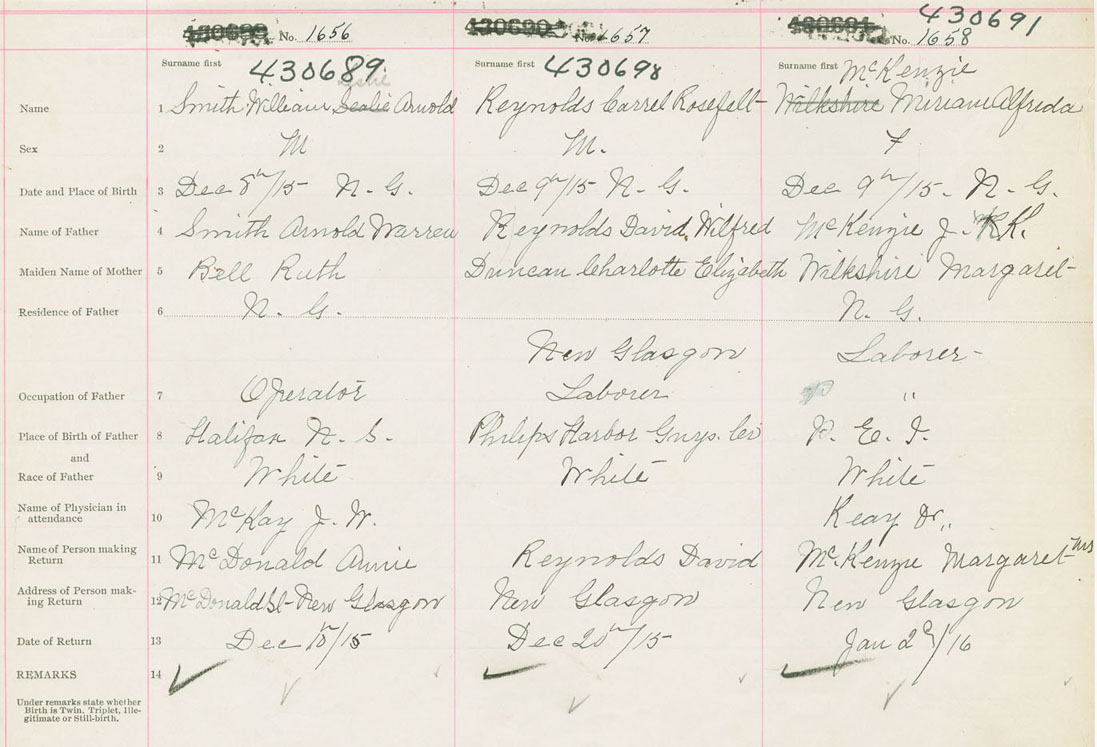 430691
No. 1656 No. 1657 No. 1658
Surname first 430689 Surname first 430690 Surname first McKenzie
Leslie
Name 1 Smith William Leslie Arnold Reynolds Carrel Rosefelt Wilkshire Miriam Alfreda
Sex 2 M M. F
Date and Place of Birth 3 Dec 8th/15 N. G. Dec 9th/15 N. G. Dec 9th/15 - N. G.
Name of Father 4 Smith Arnold Warren Reynolds David Wilfred McKenzie J. R.
Maiden Name of Mother 5 Bell Ruth Duncan Charlotte Elizabeth Wilkshire Margaret
Residence of Father 6 N. G. N. G.
New Glasgow Laborer
Occupation of Father 7 Operator Laborer "
Place of Birth of Father 8 Halifax N. S. Philips Harbor Guys. Co P. E. I.
and
Race of Father 9 White White White
Name of Physician in
attendance 10 McKay J. W. Keay Dr.
Name of Person making
Return 11 McDonald Annie Reynolds David McKenzie Margaret Mrs
Address of Person mak-
ing Return 12 McDonald St New Glasgow New Glasgow New Glasgow
Date of Return 13 Dec 18/15 Dec 20th/15 Jan 29/16
REMARKS 14
Under remarks state whether
Birth is Twin, Triplet, Ille-
gitimate or Still-birth.